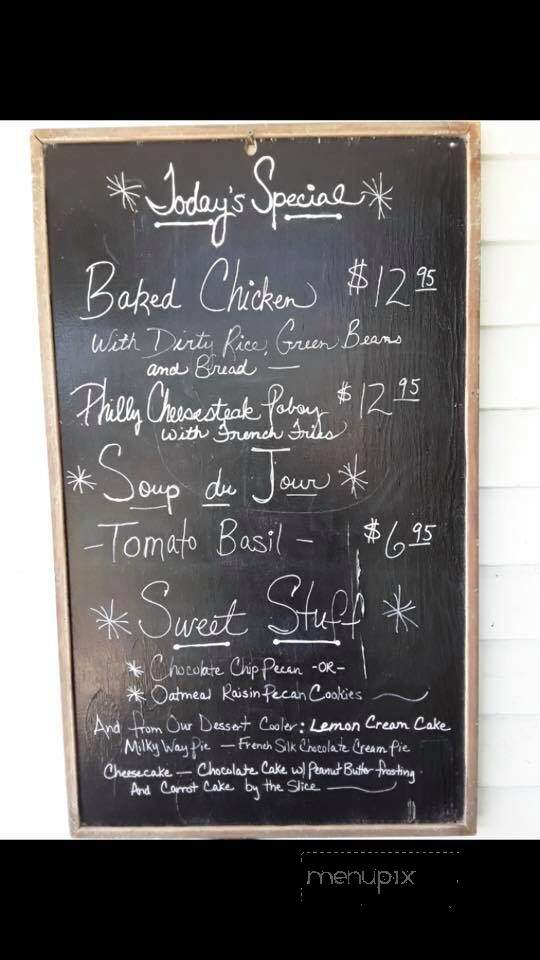 * Today's Special *
Baked Chicken $12 95
With Dirty Rice, Green Beans
and Bread —
Philly Cheesesteak Poboy $12 95
with French Fries
* Soup du Jour *
- Tomato Basil - $6 95
* Sweet Stuff *
* Chocolate Chip Pecan -OR-
* Oatmeal Raisin Pecan Cookies
And from Our Dessert Cooler: Lemon Cream Cake
Milky Way Pie — French Silk Chocolate Cream Pie
Cheesecake — Chocolate Cake w/ Peanut Butter frosting
And Carrot Cake by the Slice
menupix